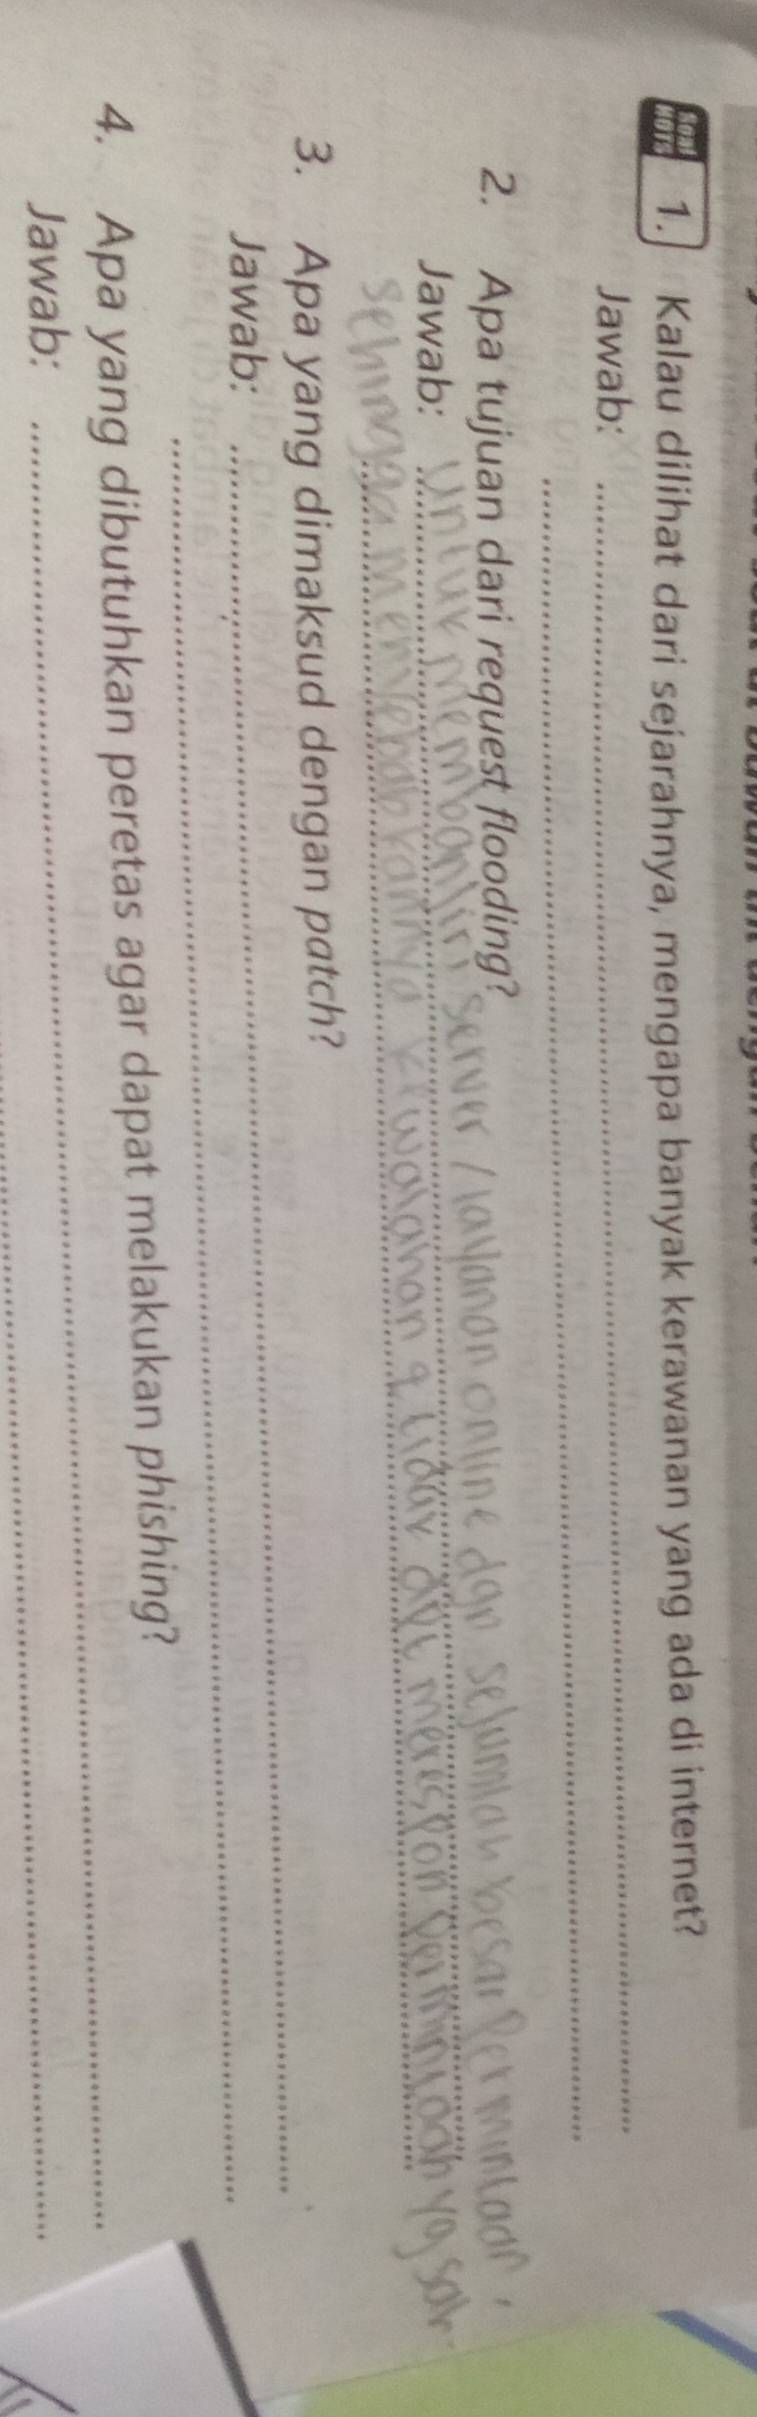 Soal HOTS 1. Kalau dilihat dari sejarahnya, mengapa banyak kerawanan yang ada di internet?
Jawab:
2. Apa tujuan dari request flooding?
Jawab: Untuk membanjiri server / layanan online dgn sejumlah besar Permintaan,
sehingga menyebabkannya kewalahan & tidak dpt merespon permintaan yg sah
3. Apa yang dimaksud dengan patch?
Jawab:
4. Apa yang dibutuhkan peretas agar dapat melakukan phishing?
Jawab: